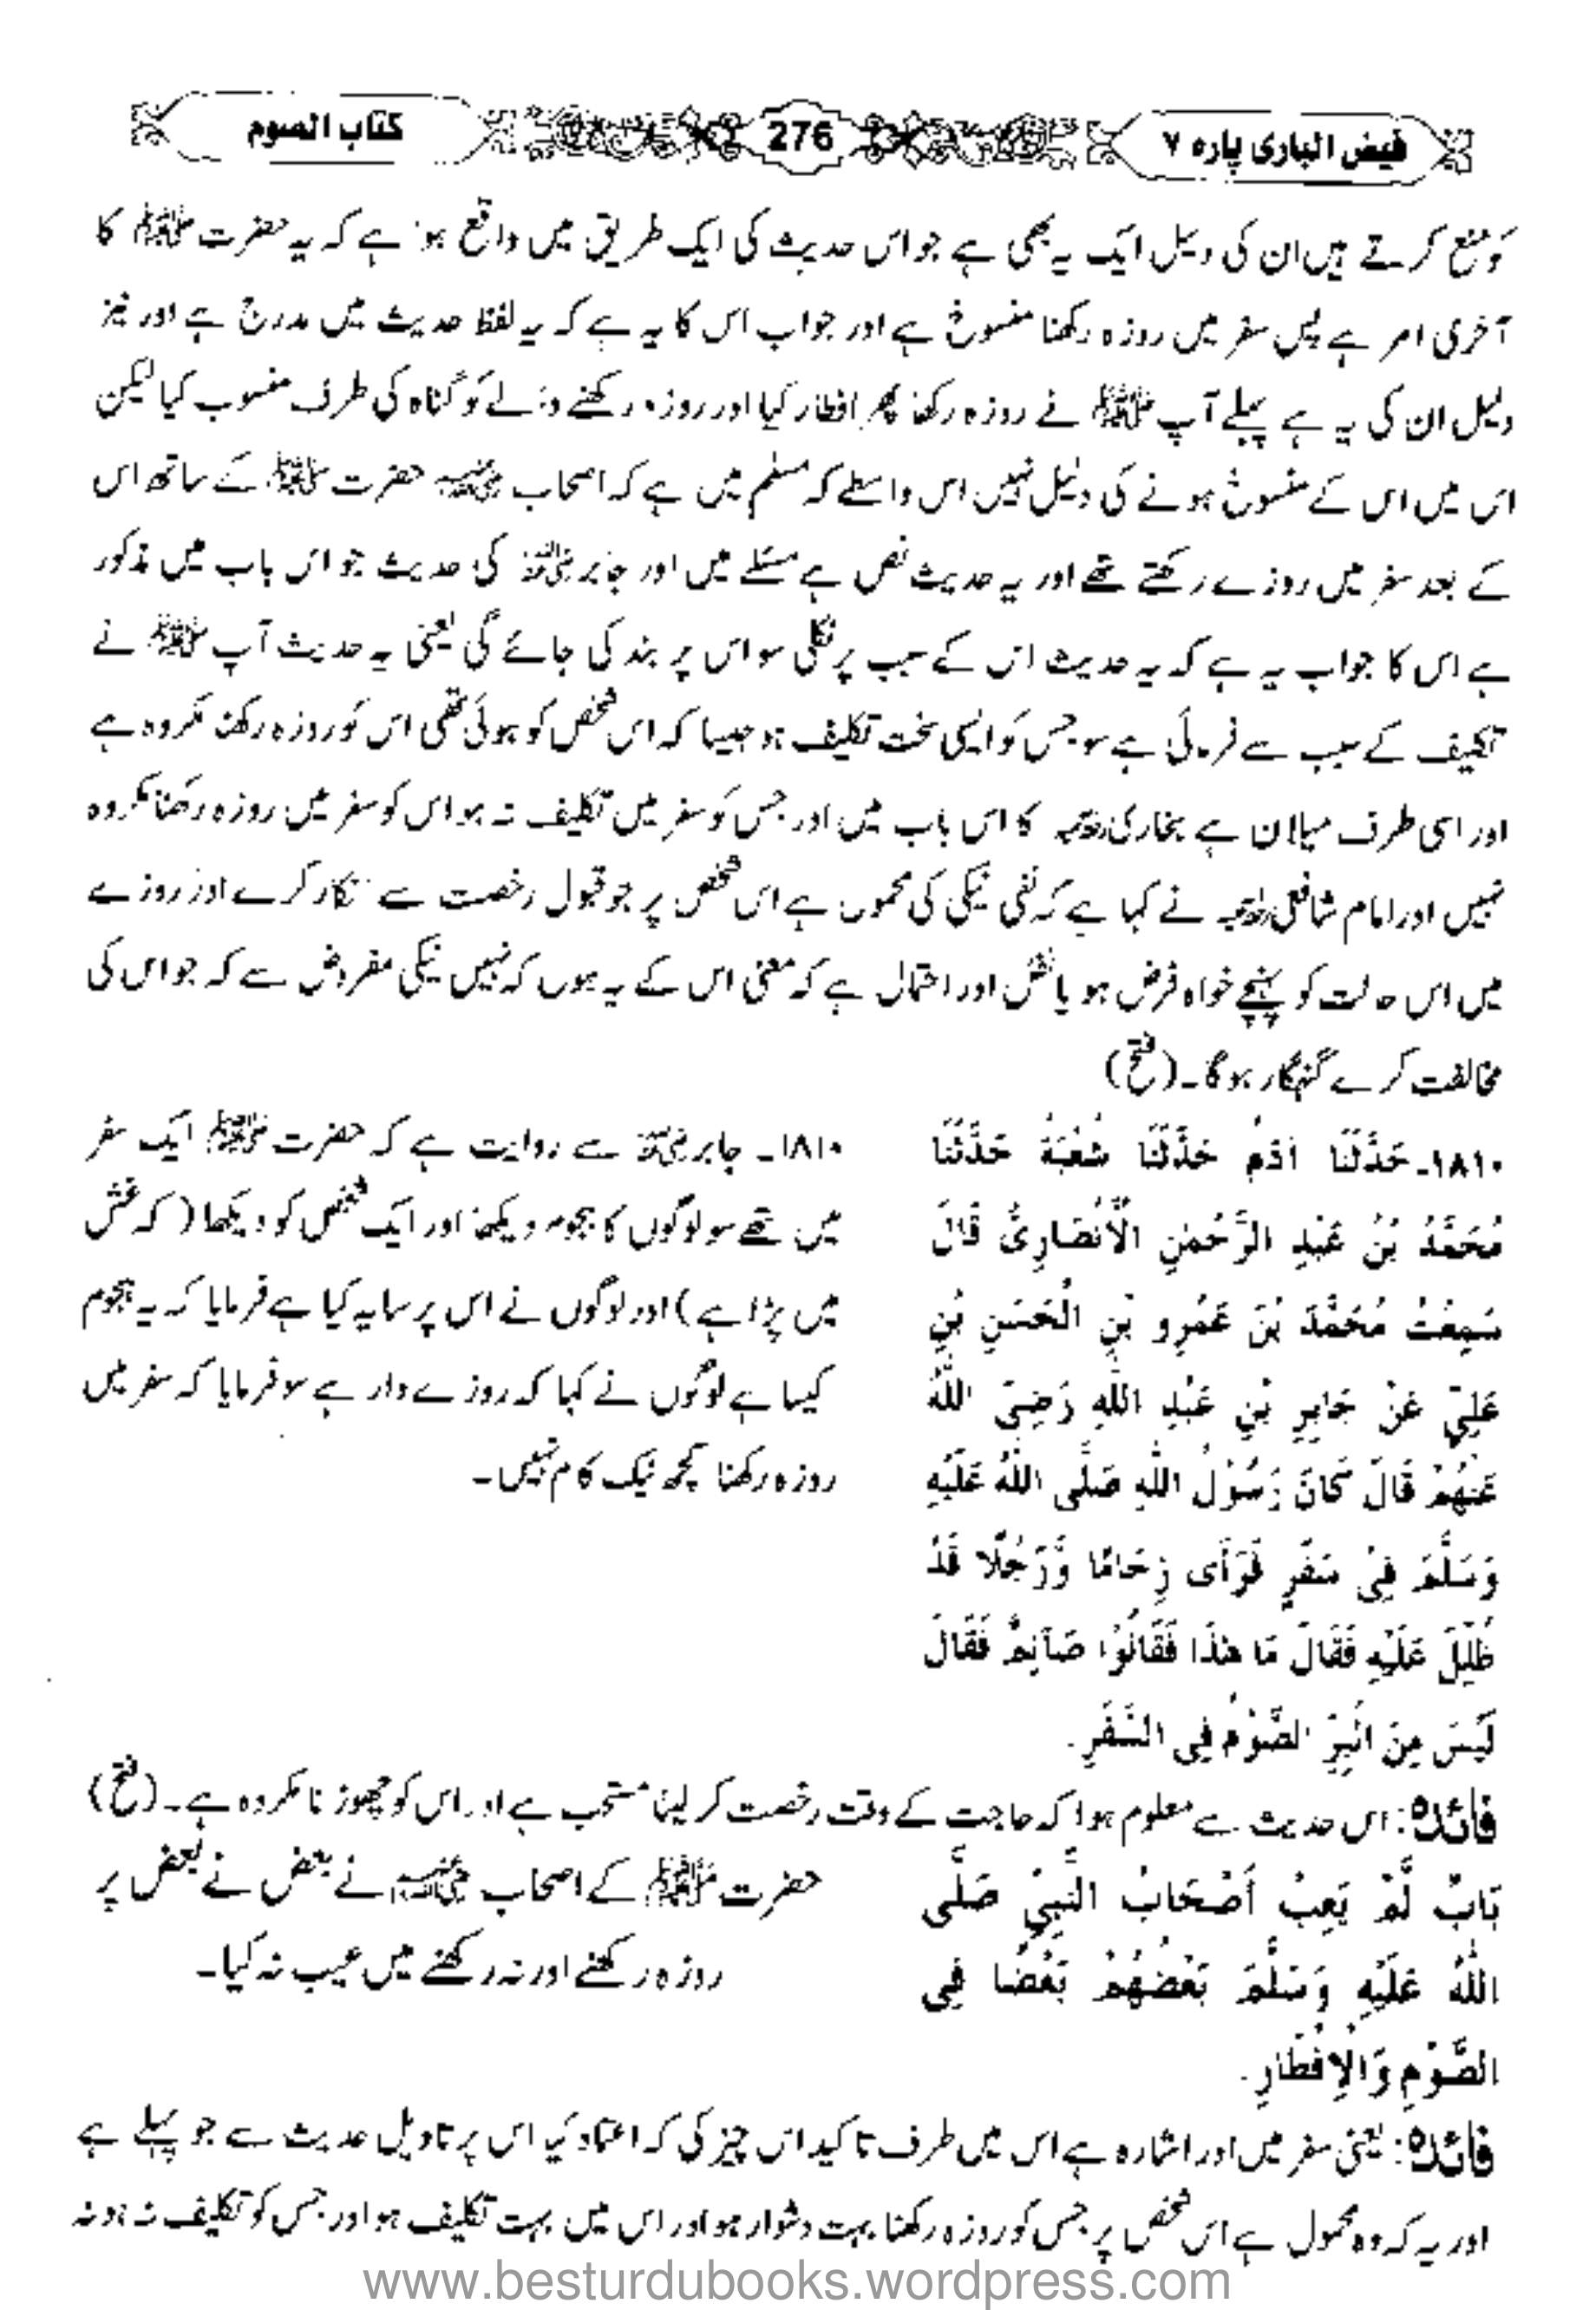 فیض الباری پارہ ۷
276
کتاب الصوم
کو منع کرتے ہیں ان کی دلیل ایک یہ بھی ہے جو اس حدیث کی ایک طریق میں واقع ہوا ہے کہ یہ حضرت ﷺ کا
آخری امر ہے پس سفر میں روزہ رکھنا منسوخ ہے اور جواب اس کا یہ ہے کہ یہ لفظ حدیث میں مدرج ہے اور نیز
دلیل ان کی یہ ہے پہلے آپ ﷺ نے روزہ رکھا پھر افطار کیا اور روزہ رکھنے والے کو گناہ کی طرف منسوب کیا لیکن
اس میں اس کے منسوخ ہونے کی دلیل نہیں اس واسطے کہ مسلم میں ہے کہ اصحاب رضی اللہ عنہم حضرت ﷺ کے ساتھ اس
کے بعد سفر میں روزے رکھتے تھے اور یہ حدیث نص ہے مسئلے میں اور جابر رضی اللہ عنہ کی حدیث جو اس باب میں مذکور
ہے اس کا جواب یہ ہے کہ یہ حدیث اس کے سبب پر نکلی سو اس پر بند کی جائے گی یعنی یہ حدیث آپ ﷺ نے
تکلیف کے سبب سے فرمائی ہے سو جس کو ایسی سخت تکلیف ہو جیسا کہ اس شخص کو ہوئی تھی اس کو روزہ رکھنا مکروہ ہے
اور اسی طرف میلان ہے بخاری رحمہ اللہ کا اس باب میں اور جس کو سفر میں تکلیف نہ ہو اس کو سفر میں روزہ رکھنا مکروہ
نہیں اور امام شافعی رحمہ اللہ نے کہا ہے کہ نفی نیکی کی محمول ہے اس شخص پر جو قبول رخصت سے انکار کرے اور روزے
میں اس حالت کو پہنچے خواہ فرض ہو یا نفل اور احتمال ہے کہ معنی اس کے یہ ہوں کہ نہیں نیکی مفروض سے کہ جو اس کی
مخالفت کرے گنہگار ہوگا۔ (فتح)
۱۸۱۰۔ حَدَّثَنَا اٰدَمُ حَدَّثَنَا شُعْبَةُ حَدَّثَنَا
مُحَمَّدُ بْنُ عَبْدِ الرَّحْمٰنِ الْأَنْصَارِیُّ قَالَ
سَمِعْتُ مُحَمَّدَ بْنَ عَمْرِو بْنِ الْحَسَنِ بْنِ
عَلِیٍّ عَنْ جَابِرِ بْنِ عَبْدِ اللّٰهِ رَضِیَ اللّٰهُ
عَنْهُمْ قَالَ كَانَ رَسُوْلُ اللّٰهِ صَلَّی اللّٰهُ عَلَیْهِ
وَسَلَّمَ فِیْ سَفَرٍ فَرَأَی زِحَامًا وَّرَجُلًا قَدْ
ظُلِّلَ عَلَیْهِ فَقَالَ مَا هٰذَا فَقَالُوْا صَآئِمٌ فَقَالَ
لَیْسَ مِنَ الْبِرِّ الصَّوْمُ فِی السَّفَرِ.
۱۸۱۰۔ جابر رضی اللہ عنہ سے روایت ہے کہ حضرت ﷺ ایک سفر
میں تھے سو لوگوں کا ہجوم دیکھا اور ایک شخص کو دیکھا (کہ غش
میں پڑا ہے) اور لوگوں نے اس پر سایہ کیا ہے فرمایا کہ یہ ہجوم
کیسا ہے لوگوں نے کہا کہ روزے دار ہے سو فرمایا کہ سفر میں
روزہ رکھنا کچھ نیک کام نہیں۔
فائدہ: اس حدیث سے معلوم ہوا کہ حاجت کے وقت رخصت کر لینا مستحب ہے اور اس کو چھوڑنا مکروہ ہے۔ (فتح)
بَابٌ لَّمْ یَعِبْ أَصْحَابُ النَّبِیِّ صَلَّی
اللّٰهُ عَلَیْهِ وَسَلَّمَ بَعْضُهُمْ بَعْضًا فِی
الصَّوْمِ وَالْاِفْطَارِ.
حضرت ﷺ کے اصحاب رضی اللہ عنہم نے بعض نے بعض پر
روزہ رکھنے اور نہ رکھنے میں عیب نہ کیا۔
فائدہ: یعنی سفر میں اور اشارہ ہے اس میں طرف تاکید اس چیز کی کہ اعتماد کیا اس پر تاویل حدیث سے جو پہلے ہے
اور یہ کہ وہ محمول ہے اس شخص پر جس کو روزہ رکھنا بہت دشوار ہو اور اس میں بہت تکلیف ہو اور جس کو تکلیف نہ ہو نہ
www.besturdubooks.wordpress.com